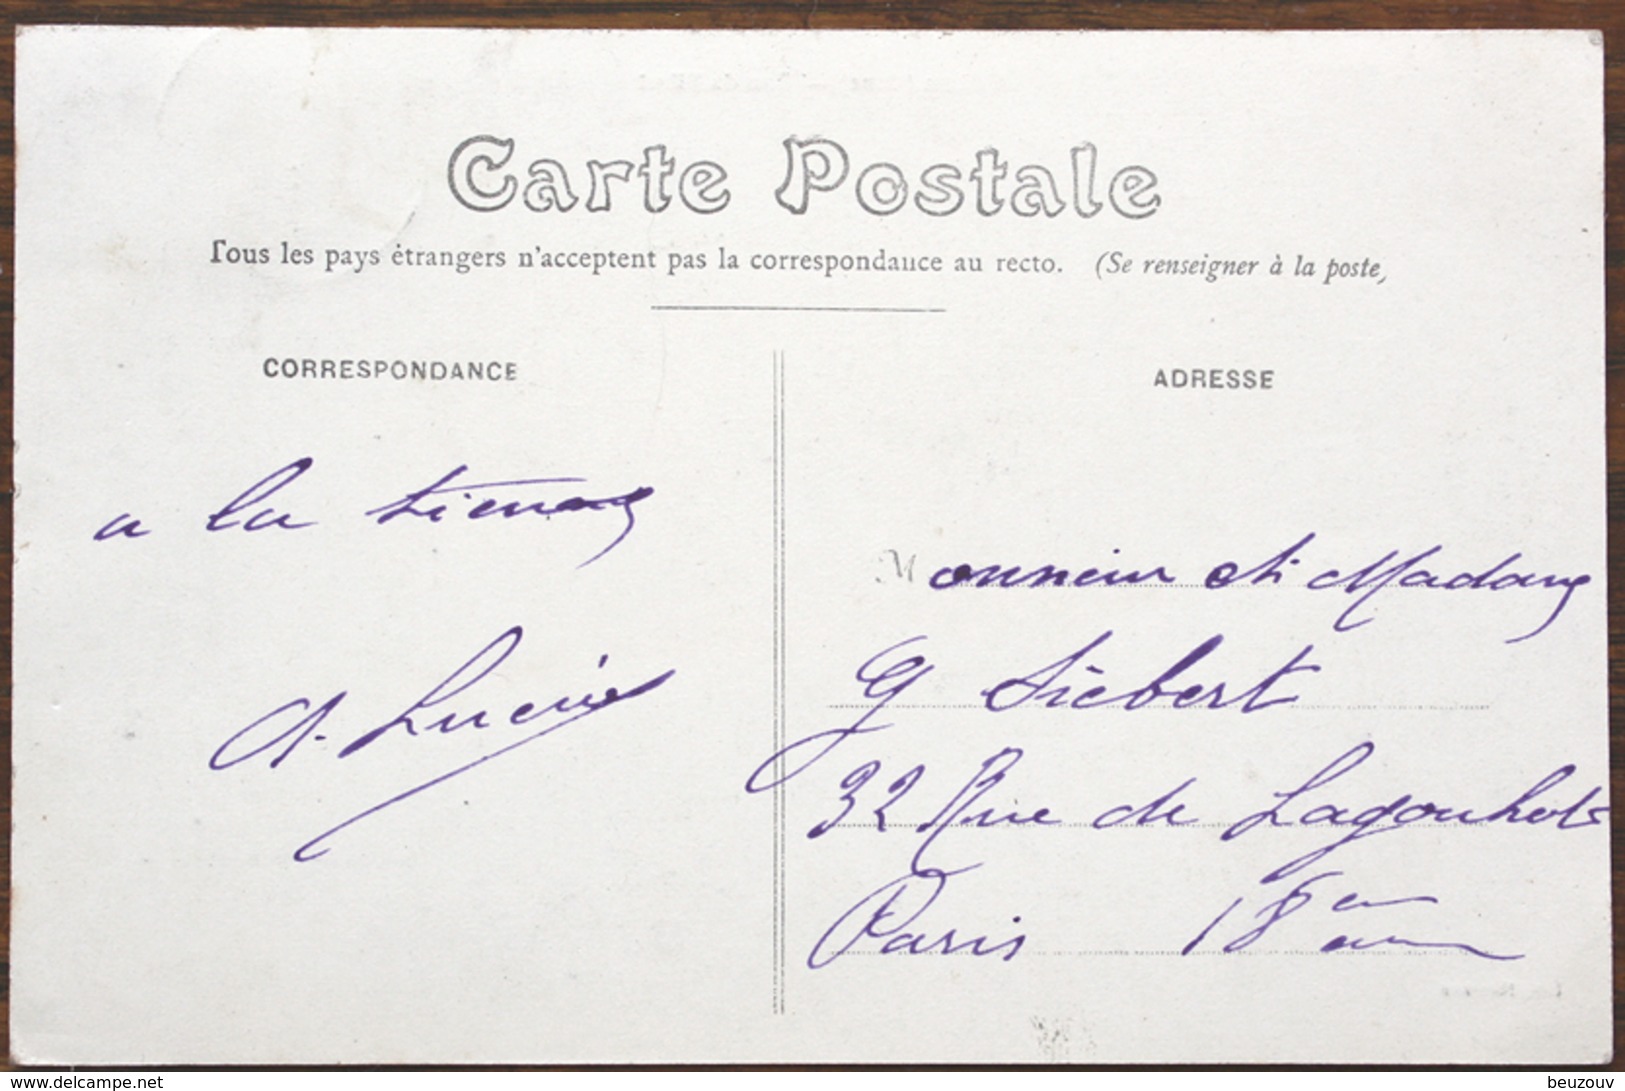 Carte Postale
Tous les pays étrangers n'acceptent pas la correspondance au recto. (Se renseigner à la poste)
CORRESPONDANCE
ADRESSE
a la tienne
A. Lucien
Monnsieur et Madame
G Siebert
32 Rue de Lagouhets
Paris 18 em
www.delcampe.net
beuzouv